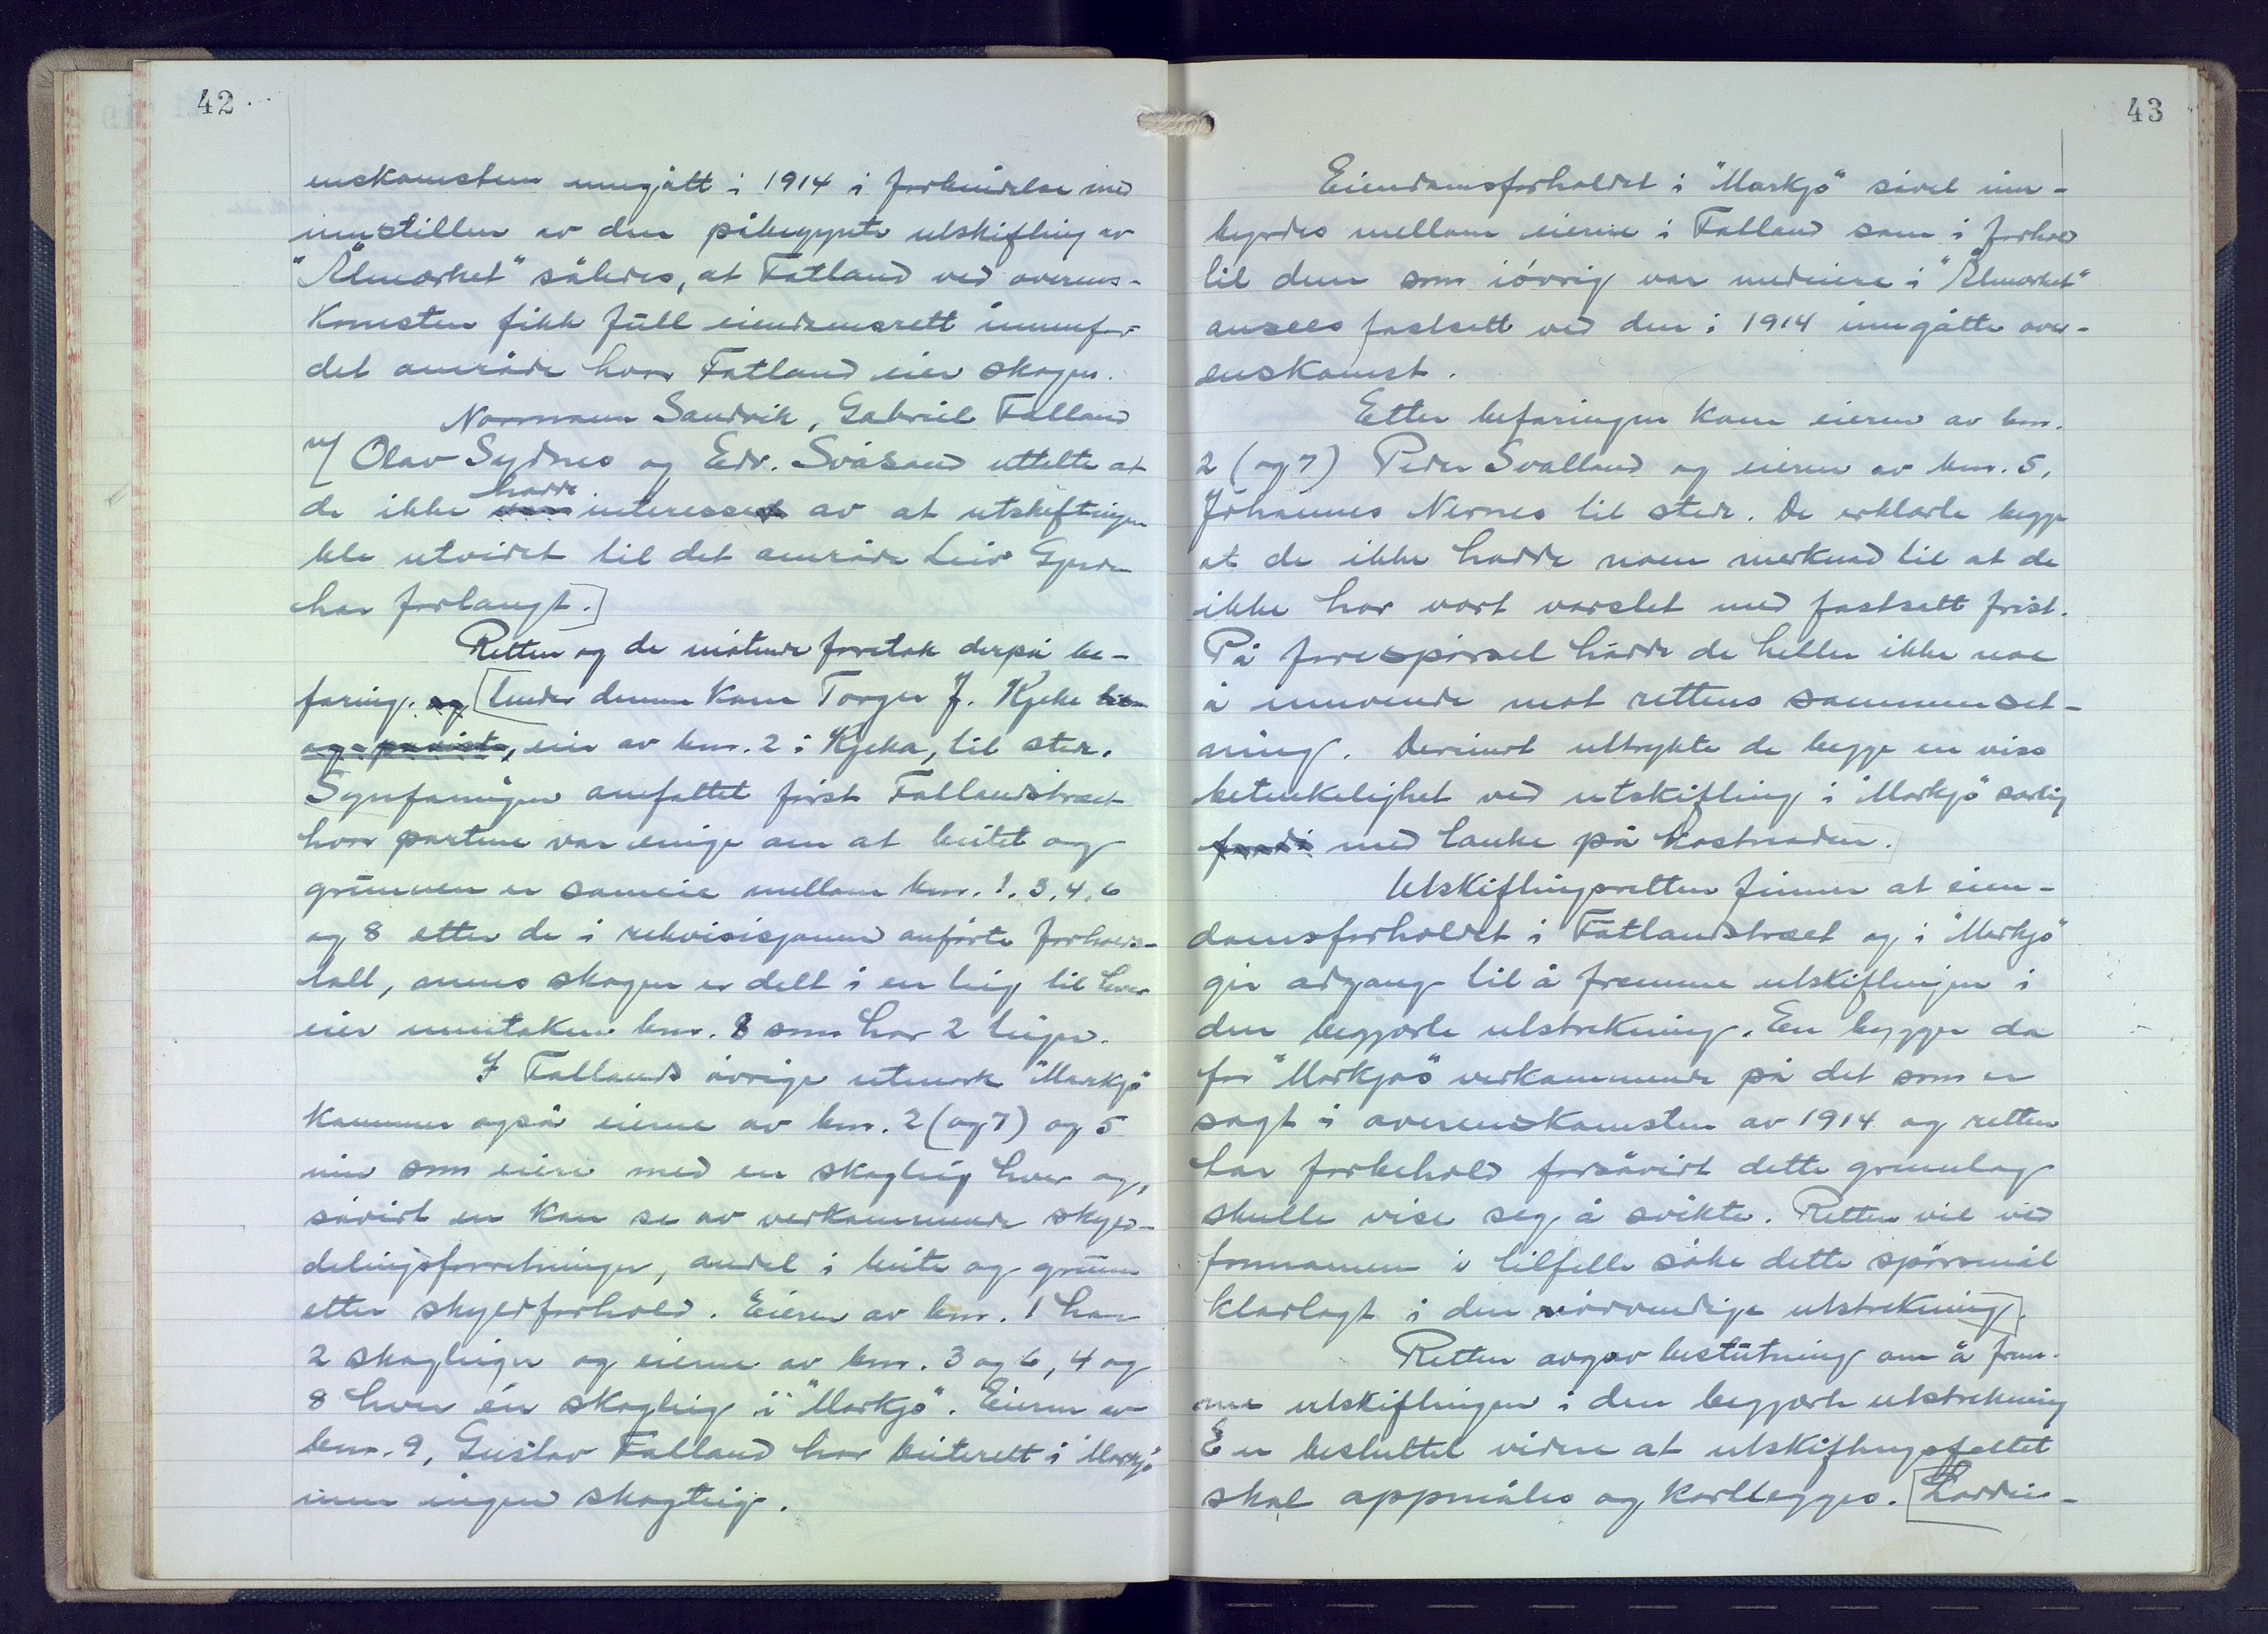 42
enskomsten inngått i 1914 i forbindelse med
innstillen av den påbegynte utskifting av
"Ålmarket" således, at Fatland ved overens-
komsten fikk full eiendomsrett innenfor
det område hvor Fatland eier skogen.
Normann Sandvik, Gabriel Fatland
v/ Olav Sydnes og Edv. Svåsand uttelte at
de ikke hadde interesse av at utskiftningen
ble utvidet til det område Leiv Gjerde
har forlangt.]
Retten og de møtende foretok derpå be-
faring. [Under denne kom Torger J. Kjeka
eier av bnr. 2 i Kjeka, til stede.
Synfaringen omfattet først Fatlandstræet
hvor partene var enige om at beitet og
grunnen er sameie mellom bnr. 1. 3. 4. 6
og 8 etter de i rekvisisjonen anførte forholds-
tall, mens skogen er delt i en teig til hver
eier unntaken bnr. 8 som har 2 teiger.
I Fatlands øvrige utmark "Markjø"
kommer også eierne av bnr. 2 (og 7) og 5
inn som eiere med en skogteig hver og,
såvidt en kan se av vedkommende skyld-
delingsforretninger, andel i beite og grunn
etter skyldforhold. Eieren av bnr. 1 har
2 skogteiger og eierne av bnr. 3 og 6, 4 og
8 hver én skogteig i "Markjø". Eieren av
bnr. 9, Gustav Fatland har beiterett i "Markjø"
men ingen skogteig.
43
Eiendomsforholdet i "Markjø" såvel inn-
byrdes mellom eierne i Fatland som i forhold
til dem som iøvrig var medeiere i "Ålmarket"
ansees fastsett ved den i 1914 inngåtte over-
enskomst.
Etter befaringen kom eieren av bnr.
2 (og 7) Peder Svalland og eieren av bnr. 5,
Johannes Nernes til stede. De erklærte begge
at de ikke hadde noen merknad til at de
ikke har vært varslet med fastsett frist.
På forespørsel hadde de heller ikke noe
å innvende mot rettens sammenset-
ning. Derimot uttrykte de begge en viss
betenkelighet ved utskifting i "Markjø" særlig
med tanke på kostnaden.
Utskiftingsretten finner at eien-
domsforholdet i Fatlandstræet og i "Markjø"
gir adgang til å fremme utskiftingen i
den begjærte utstrekning. En bygger da
for "Markjøs" vedkommende på det som er
sagt i overenskomsten av 1914 og retten
tar forbehold forsåvidt dette grunnlag
skulle vise seg å svikte. Retten vil ved
formannen i tilfelle søke dette spørsmål
klarlagt i den nødvendige utstrekning].
Retten avgav beslutning om å frem-
me utskiftingen i den begjærte utstrekning
En besluttet videre at utskiftingsfeltet
skal oppmåles og kartlegges. [Lardin-